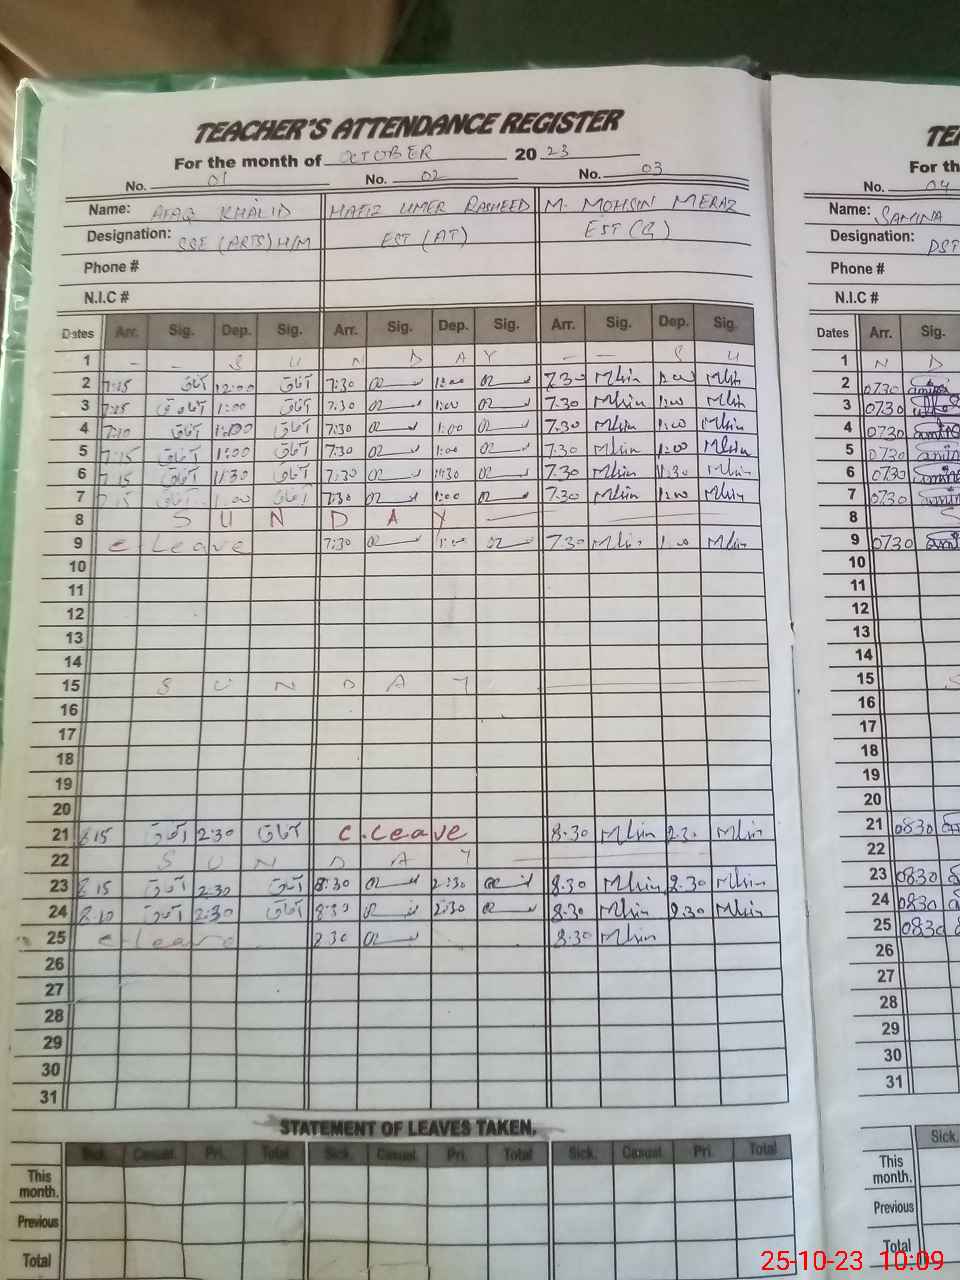 TEACHER'S ATTENDANCE REGISTER TE
For the month of OCTOBER 20 23 For th
No. 01 No. 02 No. 03 No. 04
Name: AFAQ KHALID HAFIZ UMER RASHEED M. MOHSIN MERAZ Name: SAMINA
Designation: SSE (ARTS) H/M EST (AT) EST (Q) Designation: PST
Phone # Phone #
N.I.C # N.I.C #
Dates Arr. Sig. Dep. Sig. Arr. Sig. Dep. Sig. Arr. Sig. Dep. Sig. Dates Arr. Sig.
1 - - S U N D A Y - - S U 1 N D
2 7:15 آفاق 12:00 آفاق 7:30 1:00 7.30 Mhsin Mhsin 2 0730
3 7:15 آفاق 1:00 آفاق 7:30 1:00 7.30 Mhsin 1:00 Mhsin 3 0730
4 7:10 آفاق 1:00 آفاق 7:30 1:00 7.30 Mhsin 1:00 Mhsin 4 0730
5 7:15 آفاق 1:00 آفاق 7:30 1:00 7.30 Mhsin 1:00 Mhsin 5 0730
6 7:15 آفاق 11:30 آفاق 7:30 11:30 7.30 Mhsin 11.30 Mhsin 6 0730
7 7:15 آفاق 1:00 آفاق 7:30 1:00 7.30 Mhsin 1:00 Mhsin 7 0730
8 S U N D A Y 8 S
9 c-Leave 7:30 1:00 7.30 Mhsin 1:00 Mhsin 9 0730
10 10
11 11
12 12
13 13
14 14
15 S U N D A Y 15 S
16 16
17 17
18 18
19 19
20 20
21 8.15 آفاق 2:30 آفاق C.Leave 8.30 Mhsin 2.30 Mhsin 21 0830
22 S U N D A Y 22
23 8.15 آفاق 2.30 آفاق 8:30 2:30 8.30 Mhsin 2.30 Mhsin 23 0830
24 8.10 آفاق 2:30 آفاق 8:30 2:30 8.30 Mhsin 2.30 Mhsin 24 0830
25 c-Leave 8:30 8.30 Mhsin 25 0830
26 26
27 27
28 28
29 29
30 30
31 31
STATEMENT OF LEAVES TAKEN.
Sick. Casual. Pri. Total Sick. Casual. Pri. Total Sick. Casual. Pri. Total Sick.
This month. This month.
Previous Previous
Total Total
25-10-23 10:09